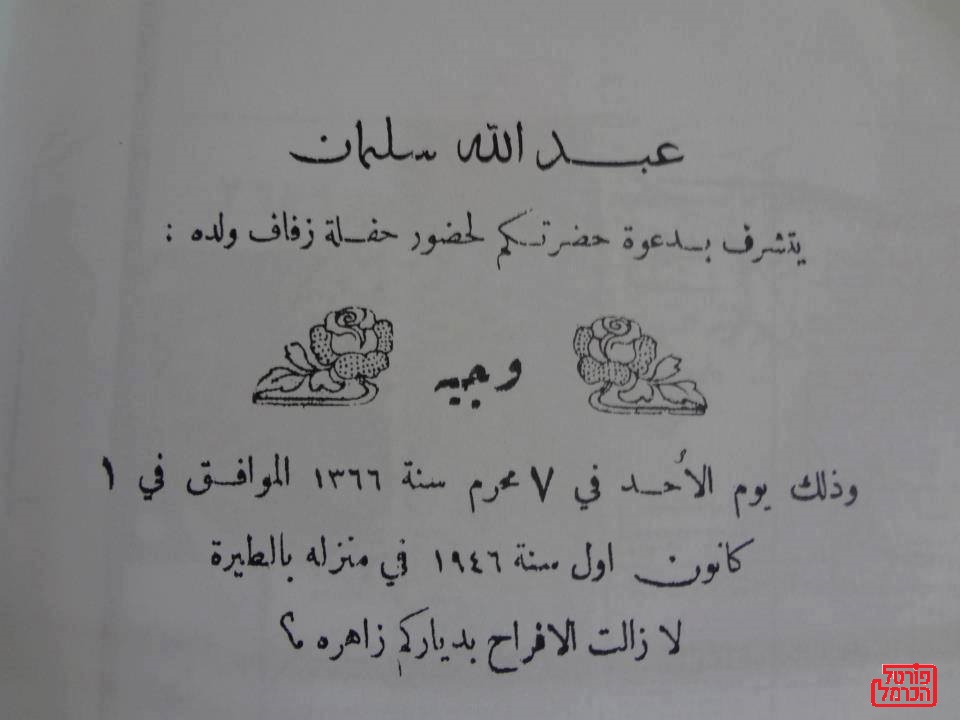 عبد الله سلمان
يتشرف بدعوة حضرتكم لحضور حفلة زفاف ولده :
وجيه
وذلك يوم الأحد في ٧ محرم سنة ١٣٦٦ الموافق في ١
كانون اول سنة ١٩٤٦ في منزله بالطيرة
لا زالت الافراح بدياركم زاهره
פורטל
הכרמל